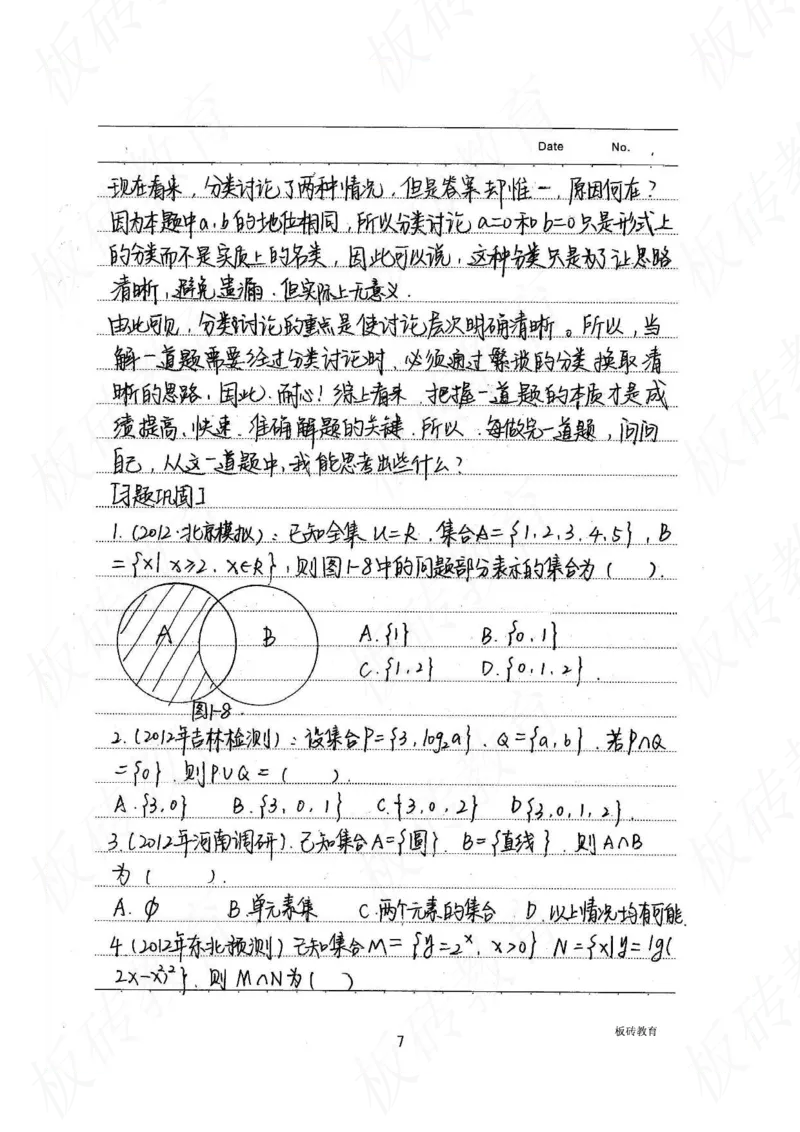 Date No.
现在看来，分类讨论了两种情况，但是答案却惟一，原因何在？
因为本题中a,b的地位相同，所以分类讨论a=0和b=0只是形式上
的分类而不是实质上的各类，因此可以说，这种分类只是为了让思路
清晰，避免遗漏．但实际上无意义．
由此可见，分类讨论的重点是使讨论层次明确清晰。所以，当
解一道题需要经过分类讨论时，必须通过繁琐的分类换取清
晰的思路，因此，耐心！综上看来，把握一道题的本质才是成
绩提高、快速、准确解题的关键．所以．每做完一道题，问问
自己，从这一道题中，我能思考出些什么？
[习题巩固]
1.(2012·北京模拟)：已知全集U=R，集合A={1,2,3,4,5}，B
={x|x≥2，x∈R}，则图1-8中的问题部分表示的集合为( ).
A B A.{1} B.{0,1}
C.{1,2} D.{0,1,2}.
图1-8.
2.(2012年吉林检测)：设集合P={3,log₂a}．Q={a,b}．若P∩Q
={0}．则P∪Q=( ).
A.{3,0} B.{3,0,1} C.{3,0,2} D{3,0,1,2}.
3.(2012年河南调研).已知集合A={圆} B={直线}．则A∩B
为( ).
A. ∅ B.单元素集 C.两个元素的集合 D.以上情况均有可能.
4.(2012年东北预测)已知集合M={y=2ˣ，x>0} N={x|y=lg(
2x-x²)²}．则M∩N为( )
板砖教育
7